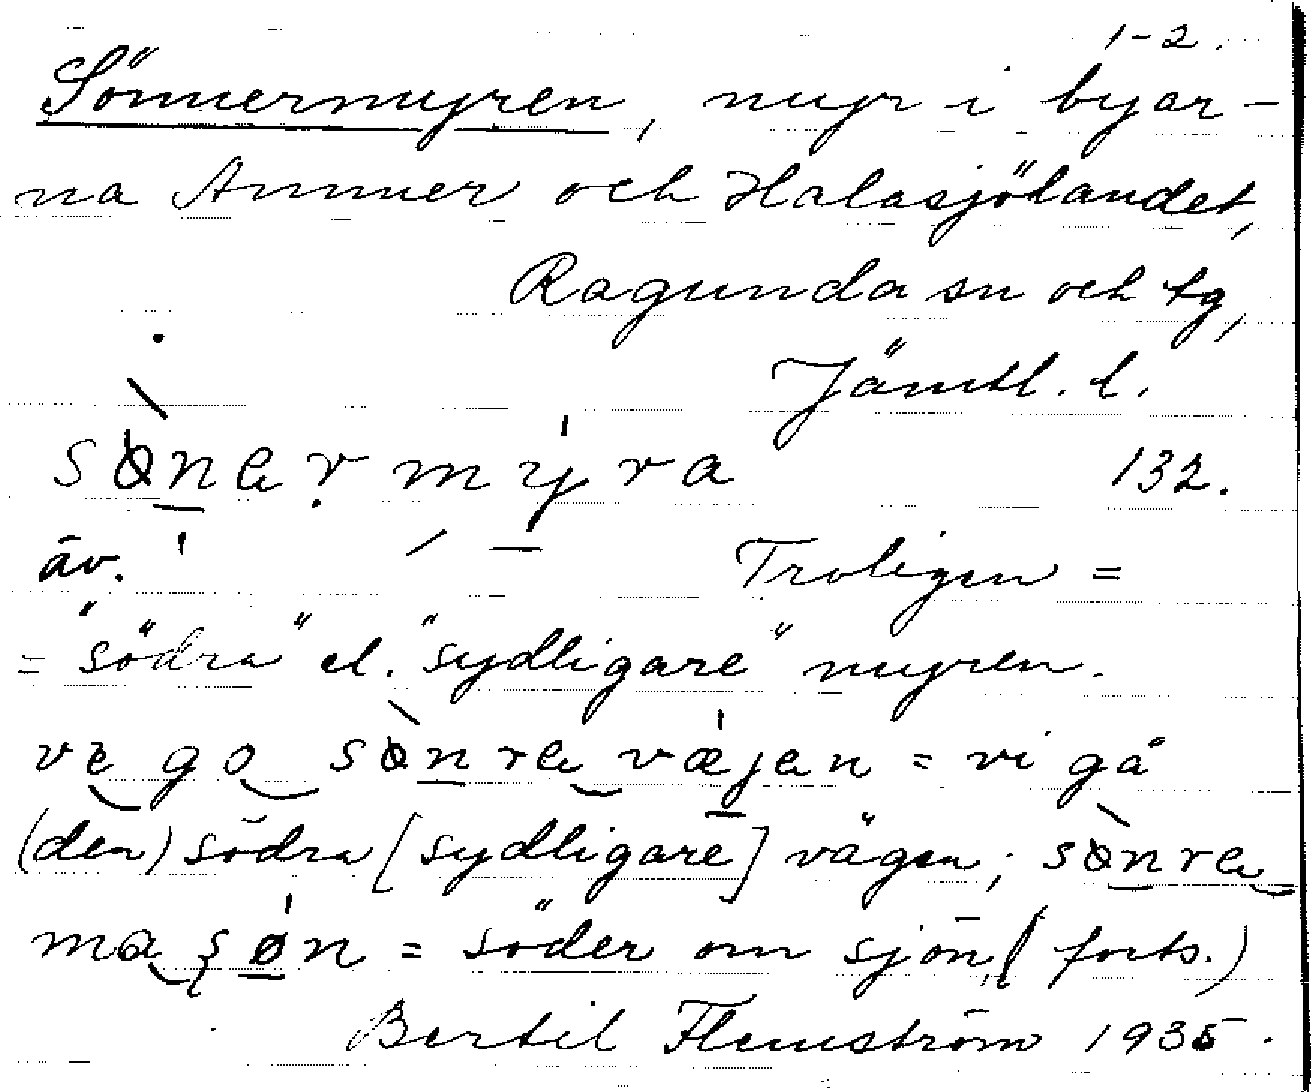 1-2.
Sönnermyren, myr i byar-
na Ammer och Halasjölandet,
Ragunda sn och tg,
Jämtl. l.
sønɐr mýra 132.
äv. Troligen =
= "södra" el. "sydligare" myren.
ve go sønrɐ væjɐn = vi gå
(den) södra [sydligare] vägen; sønrɐ
ma ʂøn = söder om sjön, (forts.)
Bertil Flemström 1935.